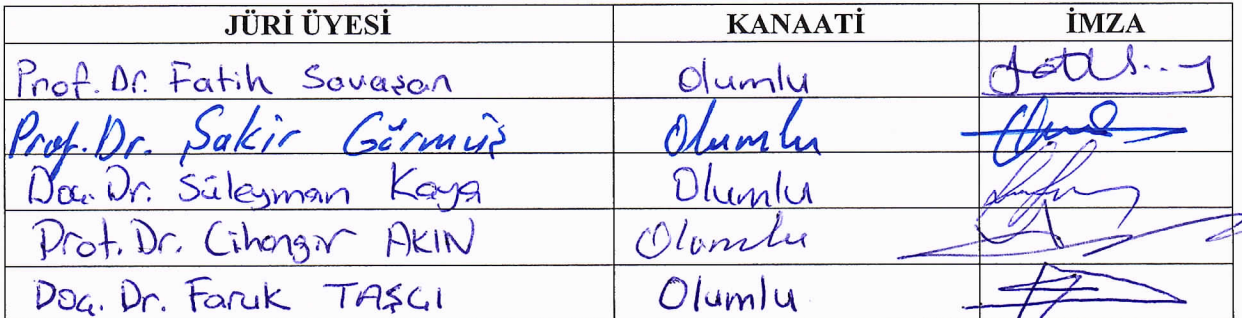 JÜRİ ÜYESİ KANAATİ İMZA
Prof. Dr. Fatih Savaşan Olumlu
Prof. Dr. Şakir Görmüş Olumlu
Doç. Dr. Süleyman Kaya Olumlu
Prof. Dr. Cihangir AKIN Olumlu
Doç. Dr. Faruk TAŞÇI Olumlu